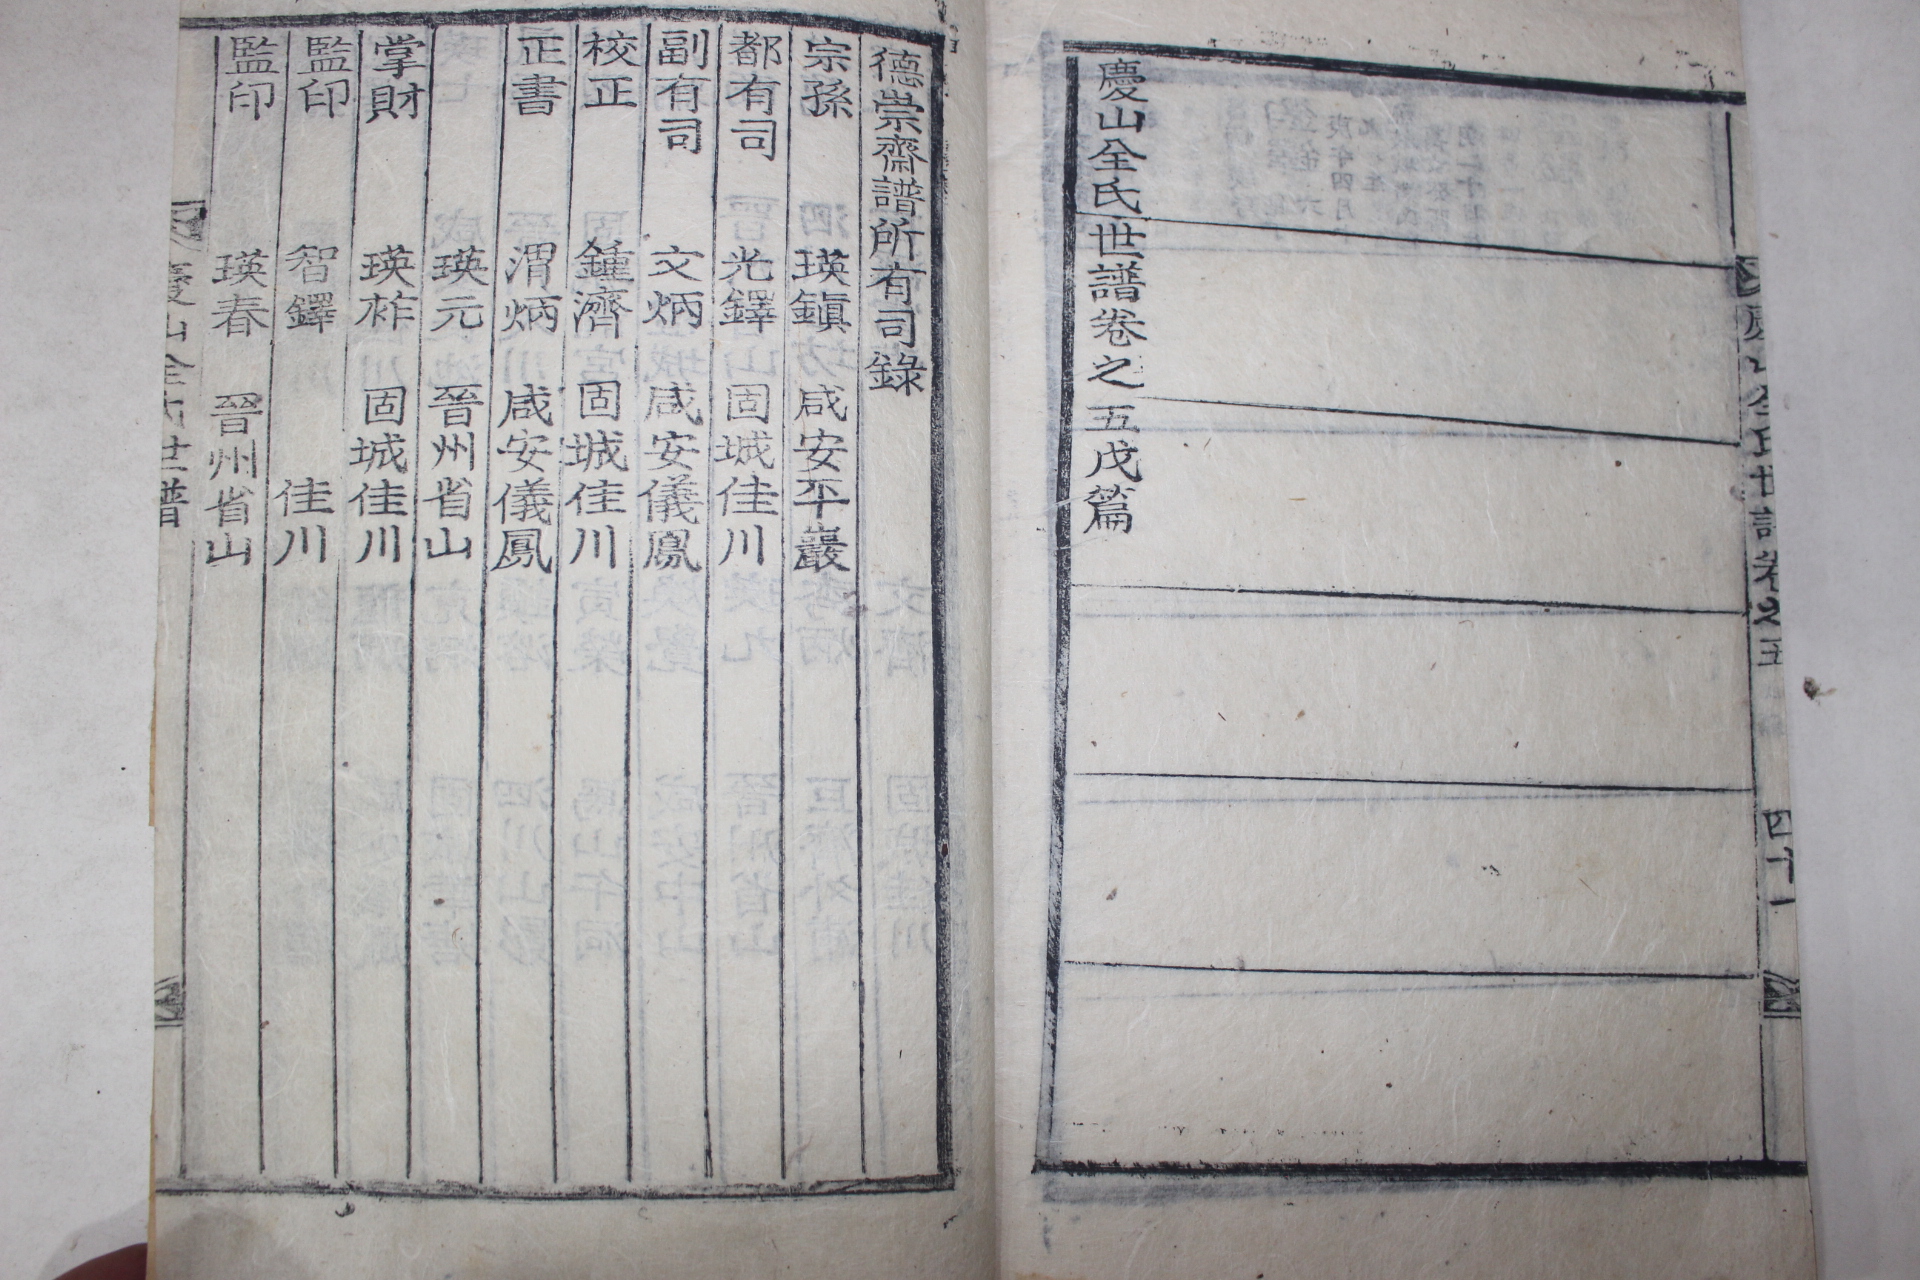 慶山全氏世譜卷之五
四十一
慶山全氏世譜卷之五戊篇
德崇齋譜所有司錄
宗孫 瑛鎭 咸安平巖
都有司 光鐸 固城佳川
副有司 文炳 咸安儀鳳
校正 鍾濟 固城佳川
正書 渭炳 咸安儀鳳
瑛元 晉州省山
掌財 瑛柞 固城佳川
監印 智鐸 佳川
監印 瑛春 晉州省山
慶山全氏世譜